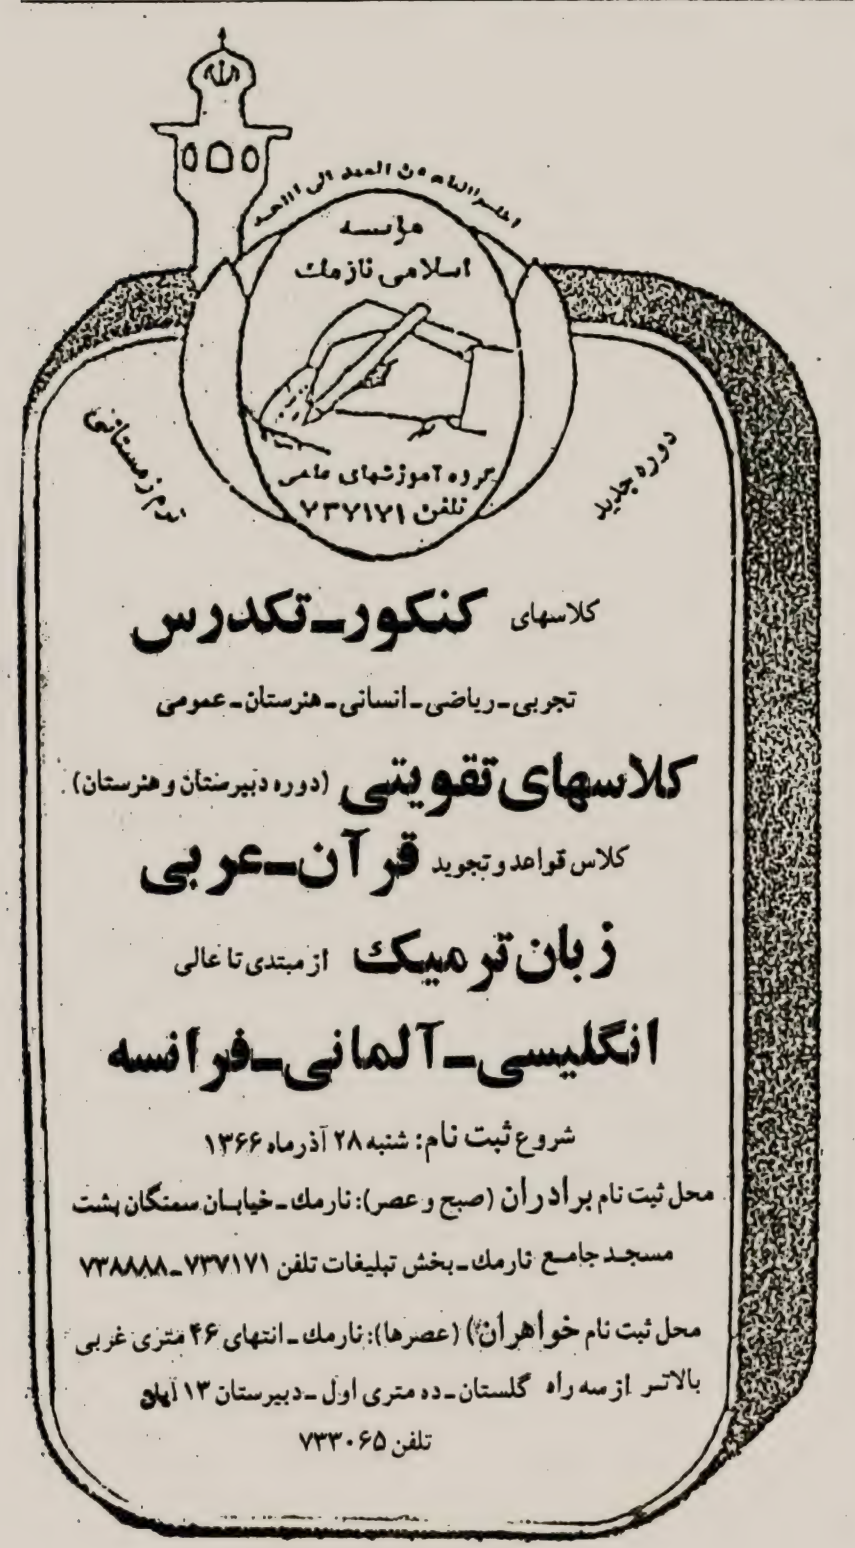 اطلبوا العلم من المهد الی اللحد
مؤسسه
اسلامی نارمك
گروه آموزشهای علمی
تلفن ۷۳۷۱۷۱
دوره جدید
ترم زمستانی
کلاسهای کنکور-تکدرس
تجربی-ریاضی-انسانی-هنرستان-عمومی
کلاسهای تقویتی (دوره دبیرستان و هنرستان)
کلاس قواعد و تجوید قرآن-عربی
زبان ترمیك از مبتدی تا عالی
انگلیسی-آلمانی-فرانسه
شروع ثبت نام: شنبه ۲۸ آذرماه ۱۳۶۶
محل ثبت نام برادران (صبح و عصر): نارمك-خیابان سمنگان پشت
مسجد جامع نارمك-بخش تبلیغات تلفن ۷۳۷۱۷۱-۷۳۸۸۸۸
محل ثبت نام خواهران) (عصرها): نارمك-انتهای ۴۶ متری غربی
بالاتر از سه راه گلستان-ده متری اول-دبیرستان ۱۳ آبان
تلفن ۷۳۳۰۶۵